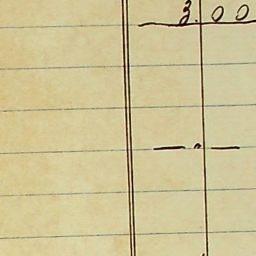 3.00
— " —